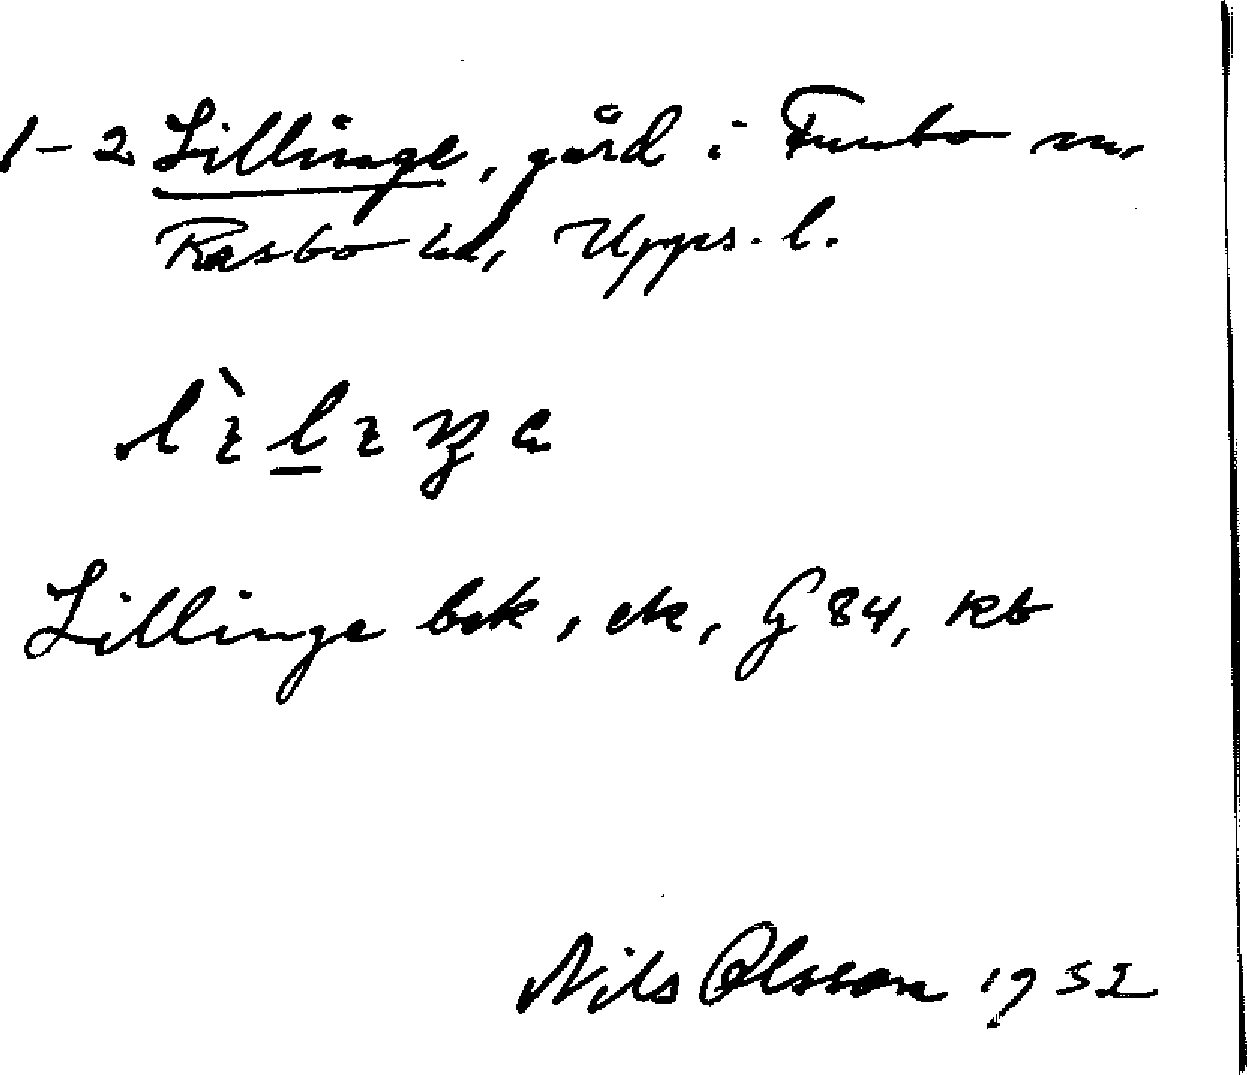 1-2 Lillinge, gård i Funbo sn,
Rasbo hd, Upps. l.
Lillinge bek, ek, G 84, kb
Nils Olsson 1932